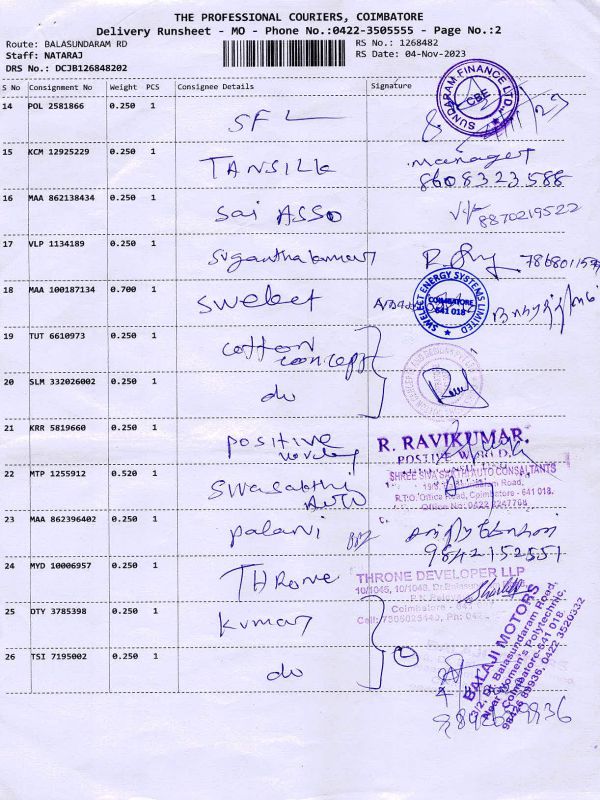 THE PROFESSIONAL COURIERS, COIMBATORE
Delivery Runsheet - MO - Phone No.:0422-3505555 - Page No.:2
Route: BALASUNDARAM RD
Staff: NATARAJ
DRS No.: DCJB126848202
RS No.: 1268482
RS Date: 04-Nov-2023
S No Consignment No Weight PCS Consignee Details Signature
14 POL 2581866 0.250 1 SFL
SUNDARAM FINANCE LTD. CBE
15 KCM 12925229 0.250 1 TANSILK manager
8608323588
16 MAA 862138434 0.250 1 Sai ASSO
8870219522
17 VLP 1134189 0.250 1
18 MAA 100187134 0.700 1 Swelect
SWELECT ENERGY SYSTEMS LIMITED COIMBATORE 641 018
19 TUT 6610973 0.250 1 cotton
concept
20 SLM 332026002 0.250 1 do
21 KRR 5819660 0.250 1 positive
R. RAVIKUMAR.
POSTIVE WORLD.
22 MTP 1255912 0.520 1 Swasakthi
AUTO
SHREE SIVA SAKTHI AUTO CONSULTANTS
R.T.O. Office Road, Coimbatore - 641 018.
23 MAA 862396402 0.250 1 palani
9842152551
24 MYD 10006957 0.250 1 THrone
THRONE DEVELOPER LLP
Coimbatore - 641
25 DTY 3785398 0.250 1 kumar
26 TSI 7195002 0.250 1 do
BALAJI MOTORS
Dr. Balasundaram Road,
Near Women's Polytechnic,
Coimbatore-641 018.
98426 89936, 0422 3520332